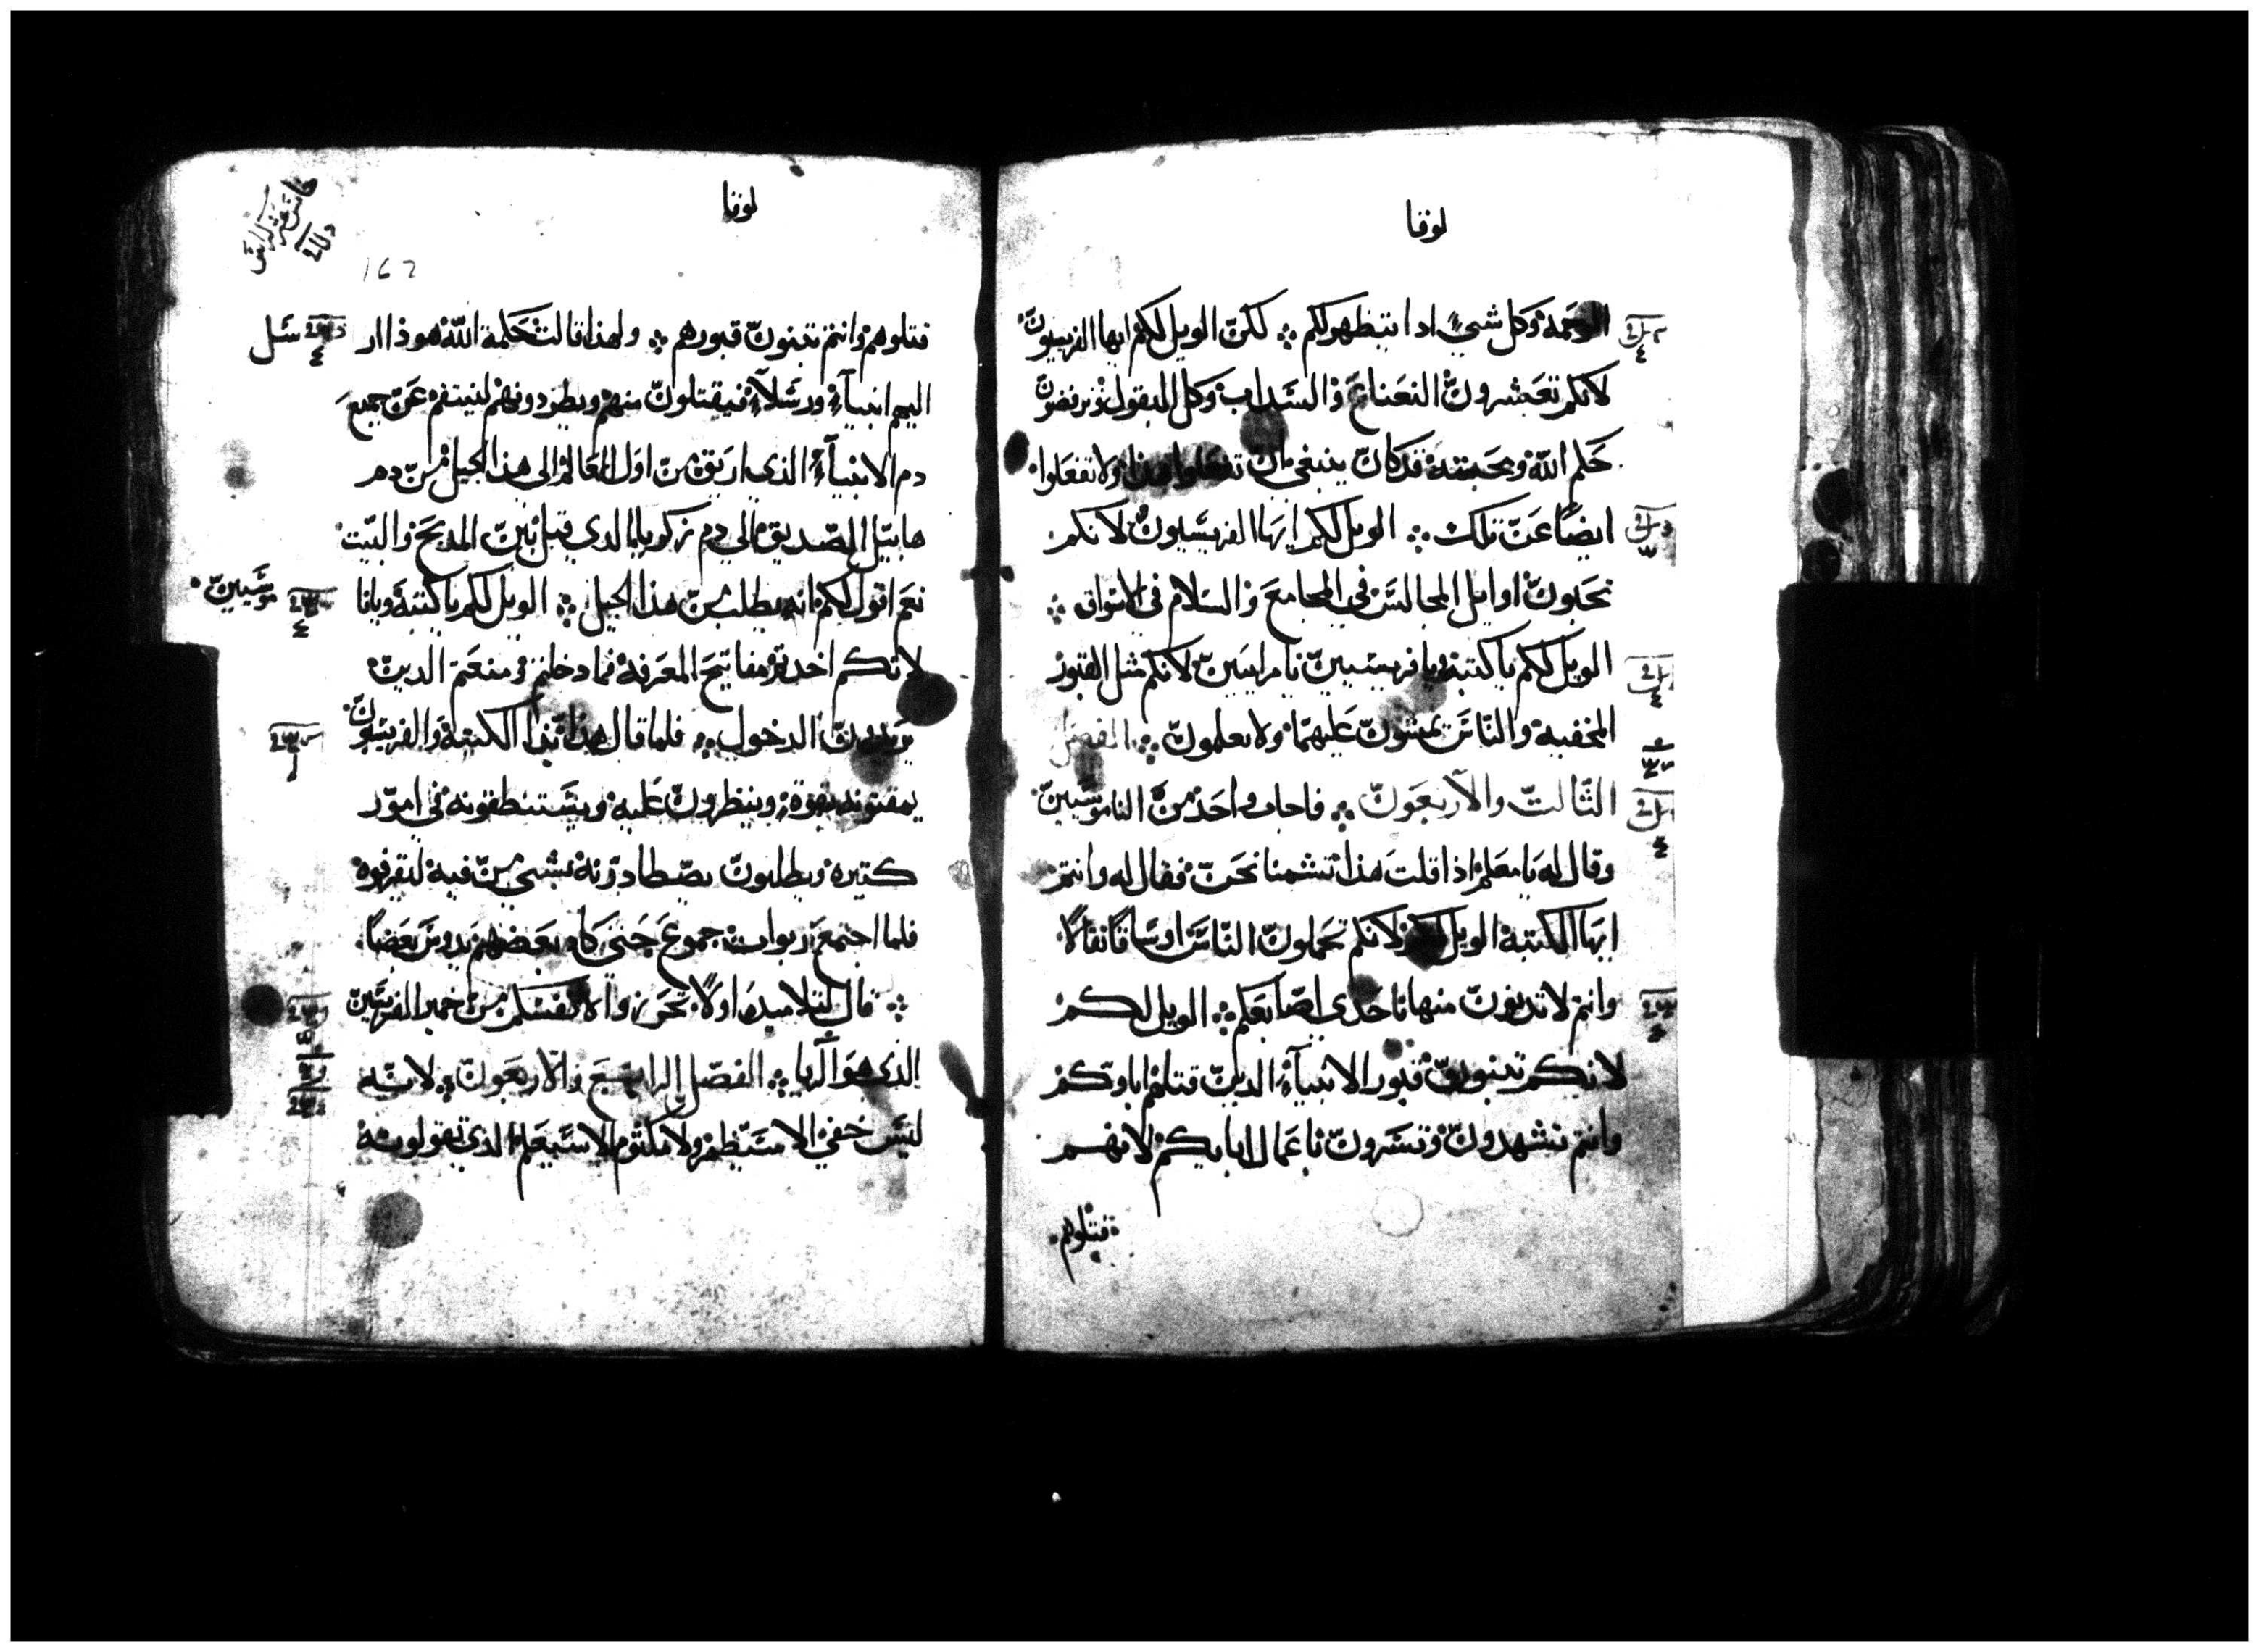 لوقا
الرحمة وكل شي ادا يتطهر لكم ۞ لكن الويل لكم ايها الفريسيون
لانكم تعشرون النعناع والسداب وكل البقول وترفضون
حكم الله ومحبته قد كان ينبغي ان تفعلوا هذا ولا تفعلوا
ايضا عن تلك ۞ الويل لكم ايها الفريسيون لانكم
تحبون اوايل المجالس في المجامع والسلام في الاسواق ۞
الويل لكم يا كتبة ويا فريسيين يا مراييين لانكم مثل القبور
المخفية والناس يمشون عليها ولا يعلمون ۞ الفصل
الثالت والاربعون ۞ فاجاب واحد من الناموسيين
وقال له يا معلم اذا قلت هذا تشتمنا نحن فقال له وانتم
ايها الكتبة الويل لكم لانكم تحملون الناس اوساقا تقالا
وانتم لا تدنون منها باحدى اصابعكم ۞ الويل لكم
لانكم تبنون قبور الانبيآء الدين قتلهم اباوكم
وانتم تشهدون وتسرون باعمال ابايكم لانهم
قتلوهم
لوقا
162
قتلوهم وانتم تبنون قبورهم ۞ ولهذا قالت حكمة الله هوذا ار
سل
اليهم انبيآء ورسلآء فيقتلون منهم ويطردونهم لينتقم عن جميع
دم الانبيآء الذي اريق من اول العالم الى هذا الجيل من دم
هابيل الصديق الي دم زكريا الدي قتل بين المدبح والبيت
نعم اقول لكم انه يطلب من هذا الجيل ۞ الويل لكم يا كتبة ويانا
موسيين
لانكم اخدتم مفاتيح المعرفة فما دخلتم ومنعتم الدين
يريدون الدخول ۞ فلما قال هذا بدا الكتبة والفريسيون
يمقتونه بقوة وينظرون عليه ويستنطقونه في امور
كتيرة ويطلبون يصطادونه بشي من فيه ليقرفوه
فلما اجتمع ربوات جموع حتي كاد بعضهم يدوس بعضا
۞ قال لتلاميده اولا تحرزوا لانفسكم من خمير الفريسيين
الدي هو الريا ۞ الفصل الرابع والاربعون ۞ لانه
ليس خفي الا سيظهر ولا مكتوم الا سيعلم الدي تقولونه